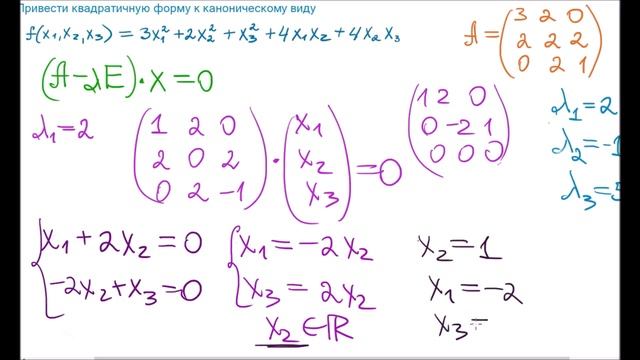 Привести квадратичную форму к каноническому виду
f(x₁,x₂,x₃) = 3x₁² + 2x₂² + x₃² + 4x₁x₂ + 4x₂x₃
A = (3 2 0
2 2 2
0 2 1)
(A-λE)·X=0
λ₁=2
(1 2 0
2 0 2
0 2 -1)
·
(x₁
x₂
x₃)
=0
(1 2 0
0 -2 1
0 0 0)
λ₁=2
λ₂=-1
λ₃=5
{x₁+2x₂=0
-2x₂+x₃=0
{x₁=-2x₂
x₃=2x₂
x₂∈ℝ
x₂=1
x₁=-2
x₃=